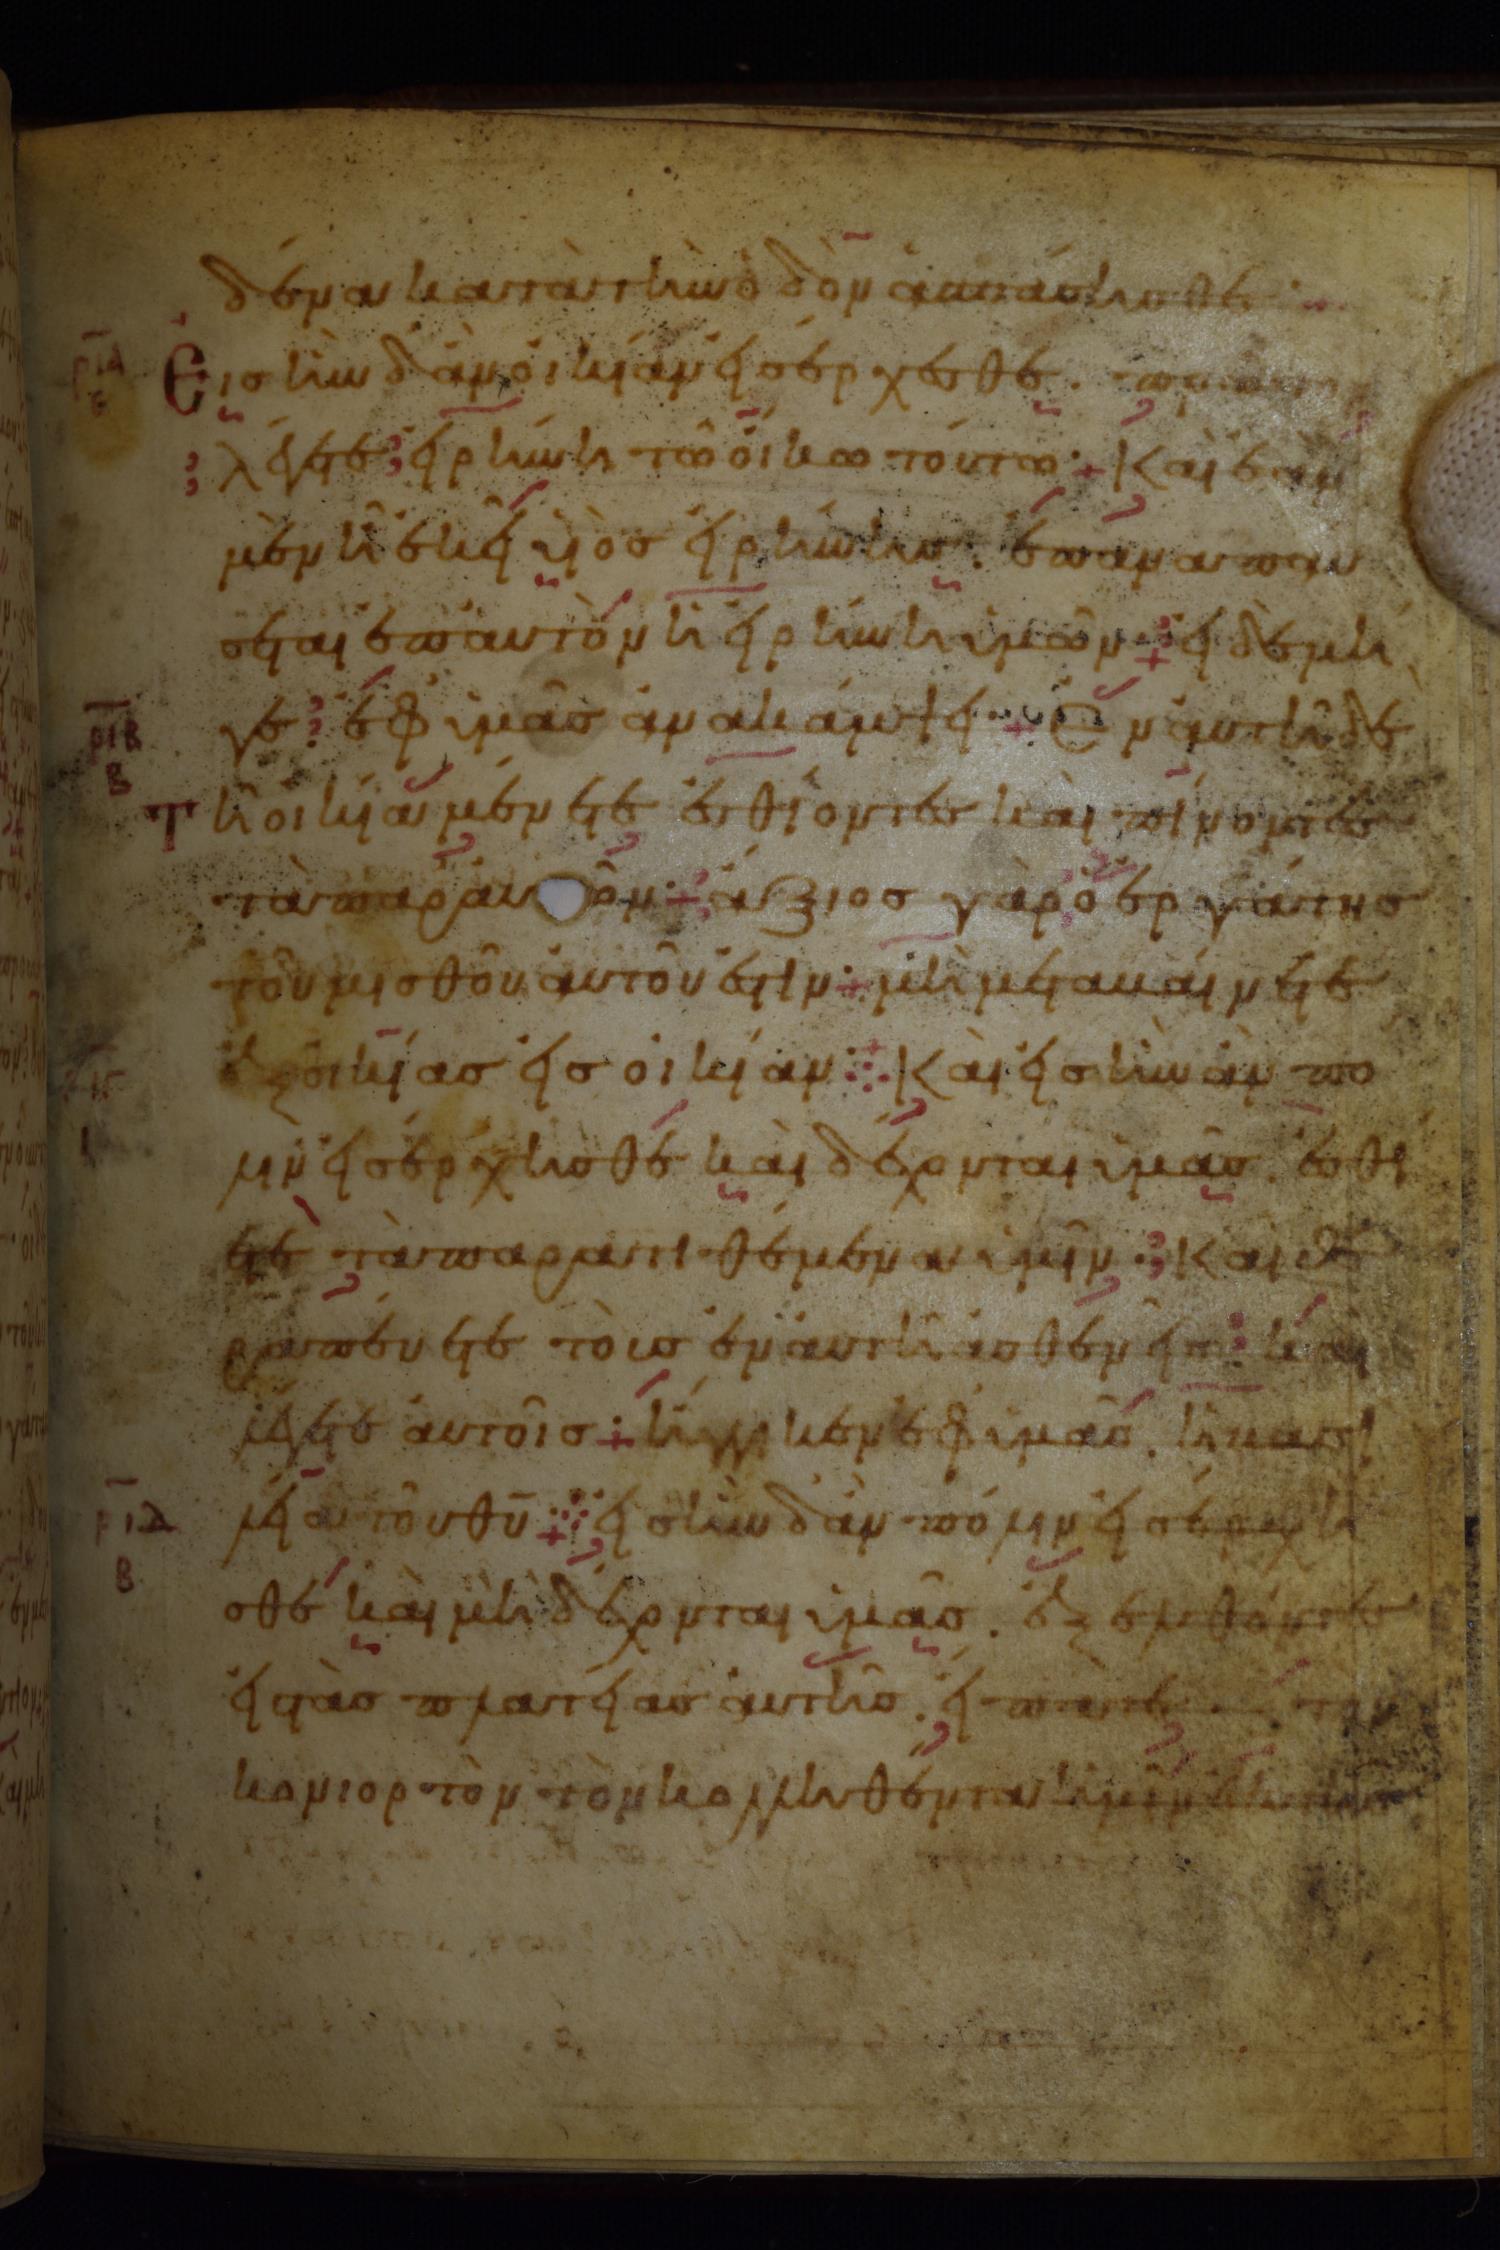 δένα κατὰ τὴν ὁδὸν ἀσπάσησθε
ρια ε Εἰς ἣν δ' ἂν οἰκίαν εἰσέρχεσθε.
λέγετε εἰρήνη τῶ οἴκω τούτω + Καὶ ἐὰν
μὲν ἦ ἐκεῖ υἱὸς εἰρήνης. ἐπαναπαύ
σεται ἐπ' αὐτὸν ἡ εἰρήνη ὑμῶν + εἰ δὲ μή
ριβ β γε ἐφ' ὑμᾶς ἀνακάμψει + Ἐν αὐτῆ δὲ
τῆ οἰκία μένετε ἐσθίοντες καὶ πίνοντες
τὰ παρ' αὐτῶν + ἄξιος γὰρ ὁ ἐργάτης
τοῦ μισθοῦ αὐτοῦ ἐστιν + μὴ μεταβαίνετε
ἐξ οἰκίας εἰς οἰκίαν Καὶ εἰς ἣν ἂν πό
ι λιν εἰσέρχησθε καὶ δέχονται ὑμᾶς. ἐσθί
ετε τὰ παρατιθέμενα ὑμῖν Καὶ θε
ραπεύετε τοὺς ἐν αὐτῆ ἀσθενεῖς καὶ
λέγετε αὐτοῖς + ἤγγικεν ἐφ' ὑμᾶς. ἡ βασι
ριδ β λεία τοῦ θῦ + εἰς ἣν δ' ἂν πόλιν εἰσέρχη
σθε καὶ μὴ δέχονται ὑμᾶς. ἐξελθόντες
εἰς τὰς πλατείας αὐτῆς. εἴπατε τὸν
κονιορτὸν τὸν κολληθέντα ἡμῖν